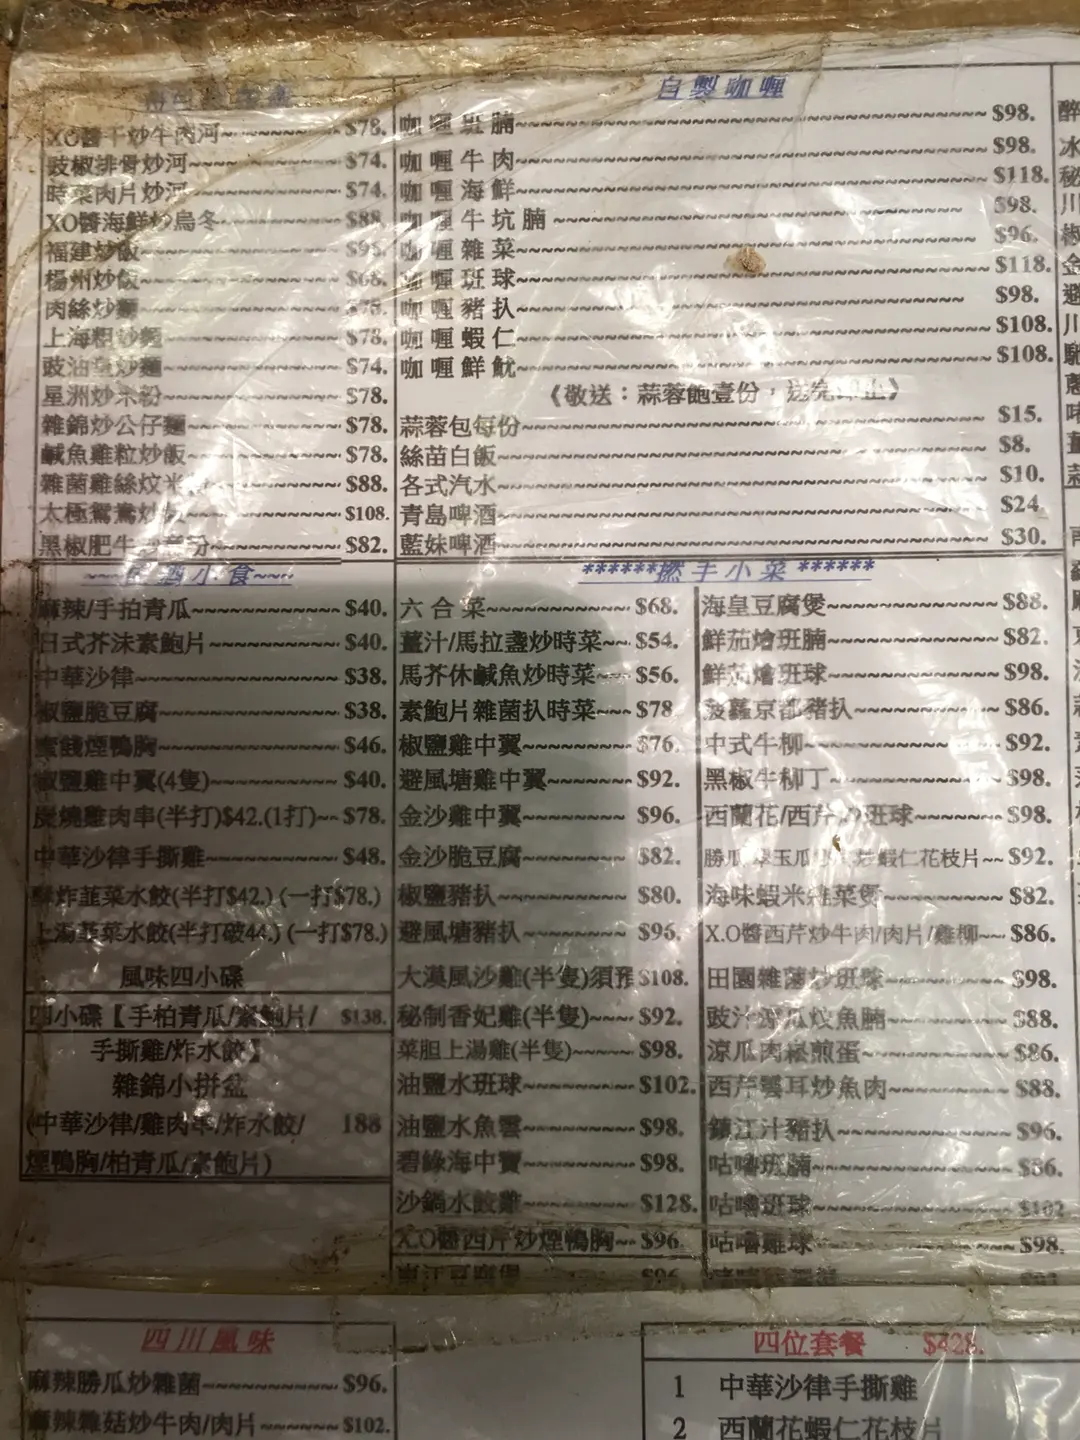 XO醬干炒牛肉河~~~~$78.
豉椒排骨炒河~~~~$74.
時菜肉片炒河~~~~$74.
XO醬海鮮炒烏冬~~~~$88.
福建炒飯~~~~
楊州炒飯~~~~
肉絲炒麵~~~~
上海粗炒麵~~~~$78.
豉油皇炒麵~~~~$74.
星洲炒米粉~~~~$78.
雜錦炒公仔麵~~~~$78.
鹹魚雞粒炒飯~~~~$78.
雜菌雞絲炆米~~~~$88.
太極鴛鴦炒~~~~$108.
黑椒肥牛~~~~$82.
自製咖喱
咖喱班腩~~~~$98.
咖喱牛肉~~~~$98.
咖喱海鮮~~~~$118.
咖喱牛坑腩~~~~$98.
咖喱雜菜~~~~$96.
咖喱班球~~~~$118.
咖喱豬扒~~~~$98.
咖喱蝦仁~~~~$108.
咖喱鮮魷~~~~$108.
《敬送：蒜蓉飽壹份，送完即止》
蒜蓉包每份~~~~$15.
絲苗白飯~~~~$8.
各式汽水~~~~$10.
青島啤酒~~~~$24
藍妹啤酒~~~~$30.
~~~酒小食~~~
麻辣/手拍青瓜~~~~$40.
日式芥沫素鮑片~~~~$40.
中華沙律~~~~$38.
椒鹽脆豆腐~~~~$38.
蜜餞煙鴨胸~~~~$46.
椒鹽雞中翼(4隻)~~~~$40.
炭燒雞肉串(半打)$42.(1打)~~$78.
中華沙律手撕雞~~~~$48.
鮮炸韮菜水餃(半打$42.) (一打$78.)
上湯韮菜水餃(半打破44.) (一打$78.)
風味四小碟
四小碟【手柏青瓜/素鮑片/ $138.
手撕雞/炸水餃】
雜錦小拼盆
(中華沙律/雞肉串/炸水餃/ 188
煙鴨胸/柏青瓜/素鮑片)
******撚手小菜******
六合菜~~~~$68.
薑汁/馬拉盞炒時菜~~$54.
馬芥休鹹魚炒時菜~~$56.
素鮑片雜菌扒時菜~~~$78
椒鹽雞中翼~~~~$76.
避風塘雞中翼~~~~$92.
金沙雞中翼~~~~$96.
金沙脆豆腐~~~~$82.
椒鹽豬扒~~~~$80.
避風塘豬扒~~~~$96.
大漠風沙雞(半隻)須預$108.
秘制香妃雞(半隻)~~~$92.
菜胆上湯雞(半隻)~~~~$98.
油鹽水班球~~~~$102.
油鹽水魚雲~~~~$98.
碧綠海中寶~~~~$98.
沙鍋水餃雞~~~~$128.
X.O醬西芹炒煙鴨胸~~$96
東江豆腐煲~~~~$96.
海皇豆腐煲~~~~$88.
鮮茄燴班腩~~~~$82.
鮮茄燴班球~~~~$98.
菠蘿京都豬扒~~~~$86.
中式牛柳~~~~$92.
黑椒牛柳丁~~~~$98.
西蘭花/西芹炒班球~~~~$98.
勝瓜/翠玉瓜炒蝦仁花枝片~~$92.
海味蝦米雜菜煲~~~~$82.
X.O醬西芹炒牛肉/肉片/雞柳~~$86.
田園雜菌炒班球~~~~$98.
豉汁涼瓜炆魚腩~~~~$88.
涼瓜肉崧煎蛋~~~~$86.
西芹雲耳炒魚肉~~~~$88.
鎮江汁豬扒~~~~$96.
咕嚕班腩~~~~$86.
咕嚕班球~~~~$102
咕嚕雞球~~~~$98.
四川風味
麻辣勝瓜炒雜菌~~~~$96.
麻辣雜菇炒牛肉/肉片~~~~$102.
四位套餐 $428.
1 中華沙律手撕雞
2 西蘭花蝦仁花枝片